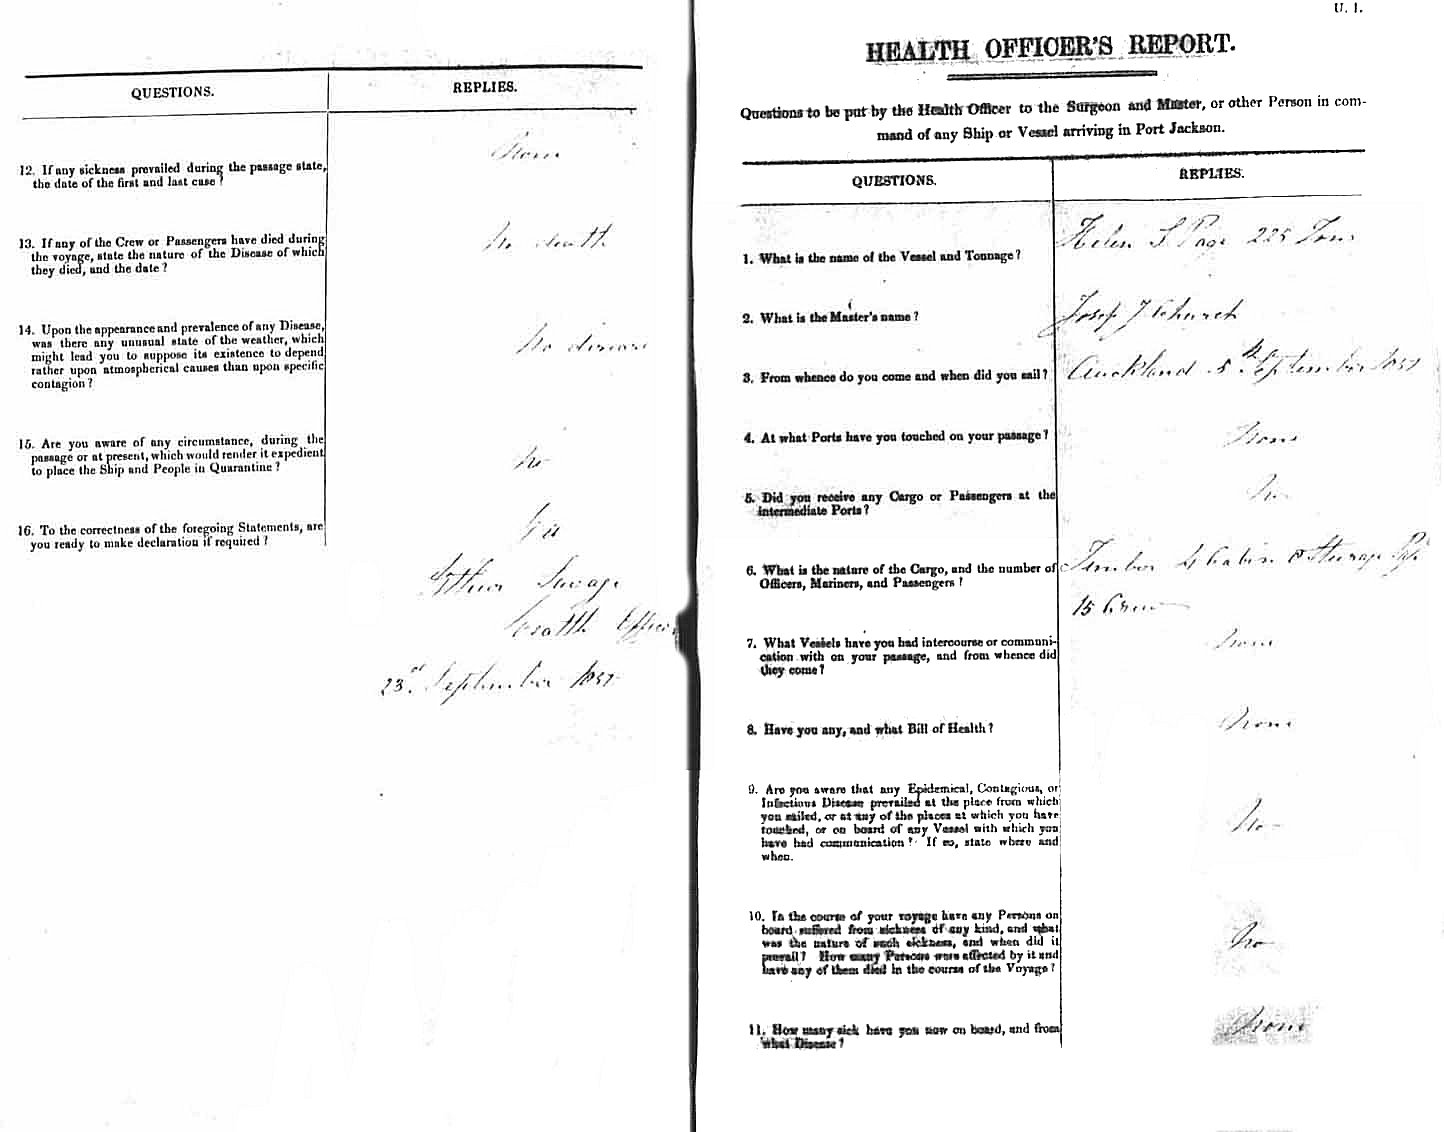 QUESTIONS.
REPLIES.
12. If any sickness prevailed during the passage state,
the date of the first and last case?
None
13. If any of the Crew or Passengers have died during
the voyage, state the nature of the Disease of which
they died, and the date?
No death
14. Upon the appearance and prevalence of any Disease,
was there any unusual state of the weather, which
might lead you to suppose its existence to depend
rather upon atmospherical causes than upon specific
contagion?
No disease
15. Are you aware of any circumstance, during the
passage or at present, which would render it expedient
to place the Ship and People in Quarantine?
No
16. To the correctness of the foregoing Statements, are
you ready to make declaration if required?
Yes
Arthur Savage
Health Officer
23rd September
U. 1.
HEALTH OFFICER'S REPORT.
Questions to be put by the Health Officer to the Surgeon and Master, or other Person in com-
mand of any Ship or Vessel arriving in Port Jackson.
QUESTIONS.
REPLIES.
1. What is the name of the Vessel and Tonnage?
Helen S Page 225 Tons
2. What is the Master's name?
Josep J Church
3. From whence do you come and when did you sail?
Auckland 5th September
4. At what Ports have you touched on your passage?
None
5. Did you receive any Cargo or Passengers at the
intermediate Ports?
No
6. What is the nature of the Cargo, and the number of
Officers, Mariners, and Passengers?
Timber 4 Cabin 8 Steerage
15 Crew
7. What Vessels have you had intercourse or communi-
cation with on your passage, and from whence did
they come?
None
8. Have you any, and what Bill of Health?
None
9. Are you aware that any Epidemical, Contagious, or
Infectious Disease prevailed at the place from which
you sailed, or at any of the places at which you have
touched, or on board of any Vessel with which you
have had communication? If so, state where and
when.
No
10. In the course of your voyage have any Persons on
board suffered from sickness of any kind, and what
was the nature of such sickness, and when did it
prevail? How many Persons were affected by it and
have any of them died in the course of the Voyage?
No
11. How many sick have you now on board, and from
what Disease?
None